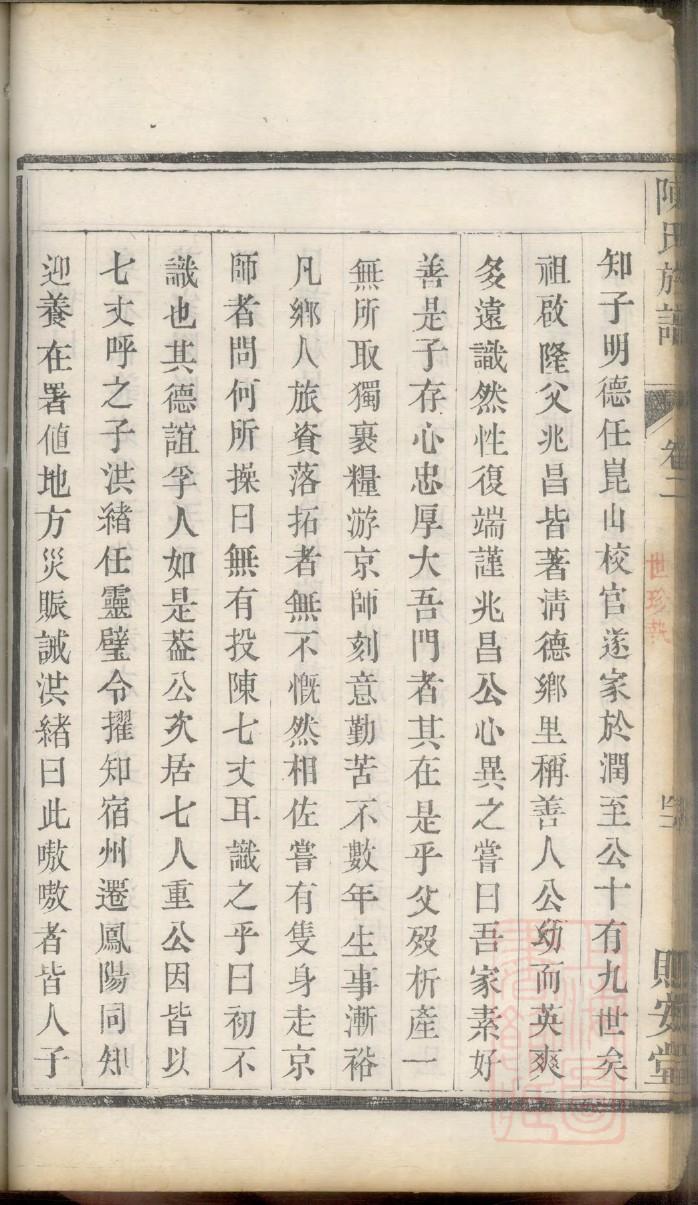 陳氏族譜
卷二
世珍執
則安堂
知子明德任崑山校官遂家於潤至公十有九世矣
祖啟隆父兆昌皆著淸德鄉里稱善人公幼而英爽
多遠識然性復端謹兆昌公心異之嘗曰吾家素好
善是子存心忠厚大吾門者其在是乎父歿析產一
無所取獨裹糧游京師刻意勤苦不數年生事漸裕
凡鄉人旅資落拓者無不慨然相佐嘗有隻身走京
師者問何所操曰無有投陳七丈耳識之乎曰初不
識也其德誼孚人如是葢公次居七人重公因皆以
七丈呼之子洪緒任靈璧令擢知宿州遷鳳陽同知
迎養在署値地方災賑誡洪緒曰此嗷嗷者皆人子